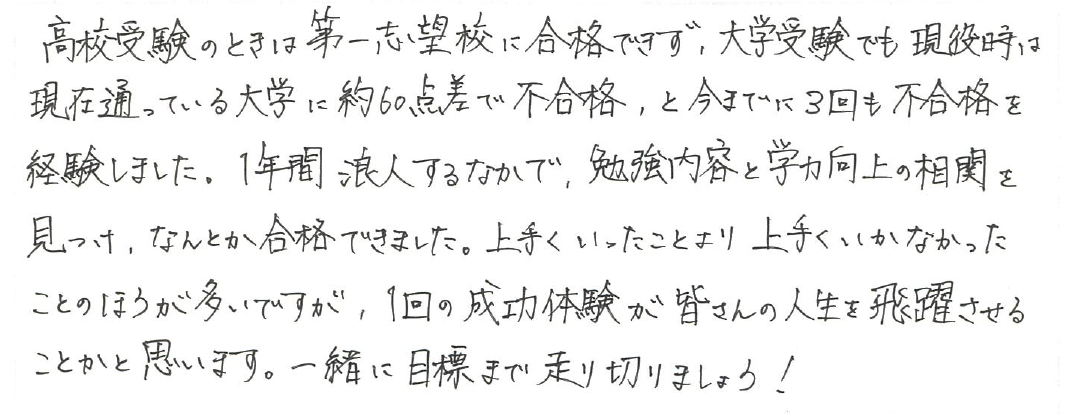 高校受験のときは第一志望校に合格できず，大学受験でも現役時は
現在通っている大学に約60点差で不合格，と今までに3回も不合格を
経験しました。1年間浪人するなかで，勉強内容と学力向上の相関を
見つけ，なんとか合格できました。上手くいったことより上手くいかなかった
ことのほうが多いですが，1回の成功体験が皆さんの人生を飛躍させる
ことかと思います。一緒に目標まで走り切りましょう！